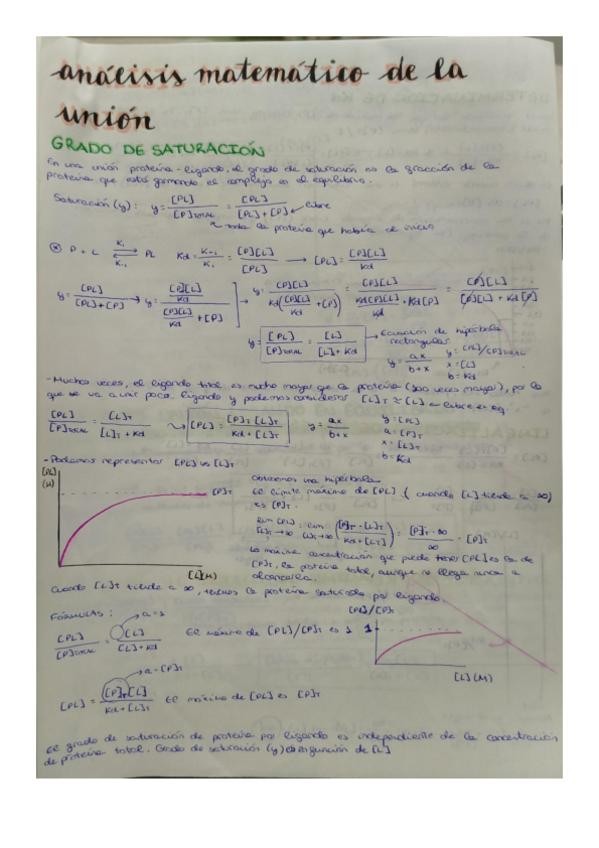 análisis matemático de la
unión
GRADO DE SATURACIÓN
En una unión proteína-ligando, el grado de saturación es la fracción de la
proteína que está formando el complejo en el equilibrio.
Saturación (y): y = [PL]/[P]TOTAL = [PL]/([PL]+[P]) ← libre
toda la proteína que había de inicio
P + L ⇌ PL  K₁ K₋₁  Kd = K₋₁/K₁ = [P][L]/[PL] → [PL] = [P][L]/Kd
y = [PL]/([PL]+[P]) → y = ([P][L]/Kd)/([P][L]/Kd + [P])  y = [P][L]/(Kd([P][L]/Kd + [P])) = [P][L]/(Kd[P][L]/Kd + Kd[P]) = [P][L]/([P][L] + Kd[P])
y = [PL]/[P]TOTAL = [L]/([L]+Kd) → Ecuación de hipérbola
rectangular
y = ax/(b+x)  y = [PL]/[P]TOTAL
x = [L]
b = Kd
- Muchas veces, el ligando total es mucho mayor que la proteína (100 veces mayor), por lo
que se va a unir poco ligando y podemos considerar [L]T ≈ [L] ← libre en eq.
[PL]/[P]TOTAL = [L]T/([L]T + Kd) → [PL] = [P]T [L]T/(Kd + [L]T)  y = ax/(b+x)  y = [PL]
a = [P]T
x = [L]T
b = Kd
- Podemos representar [PL] vs [L]T
[PL]
(M)
[P]T
[L] (M)
Obtenemos una hipérbola
El límite máximo de [PL] (cuando [L] tiende a ∞)
es [P]T.
lim [PL] = lim ([P]T · [L]T/(Kd + [L]T)) = [P]T · ∞/∞ = [P]T
[L]T→∞  [L]T→∞
La máxima concentración que puede tener [PL] es la de
[P]T, la proteína total, aunque no llega nunca a
alcanzarla.
Cuando [L]T tiende a ∞, tenemos la proteína saturada por ligando.
FÓRMULAS:
a = 1
[PL]/[P]TOTAL = [L]/([L]+Kd)  El máximo de [PL]/[P]T es 1
[PL]/[P]T
1
[L] (M)
a = [P]T
[PL] = [P]T[L]/(Kd + [L]T)  El máximo de [PL] es [P]T
El grado de saturación de proteína por ligando es independiente de la concentración
de proteína total. Grado de saturación (y) en función de [L]